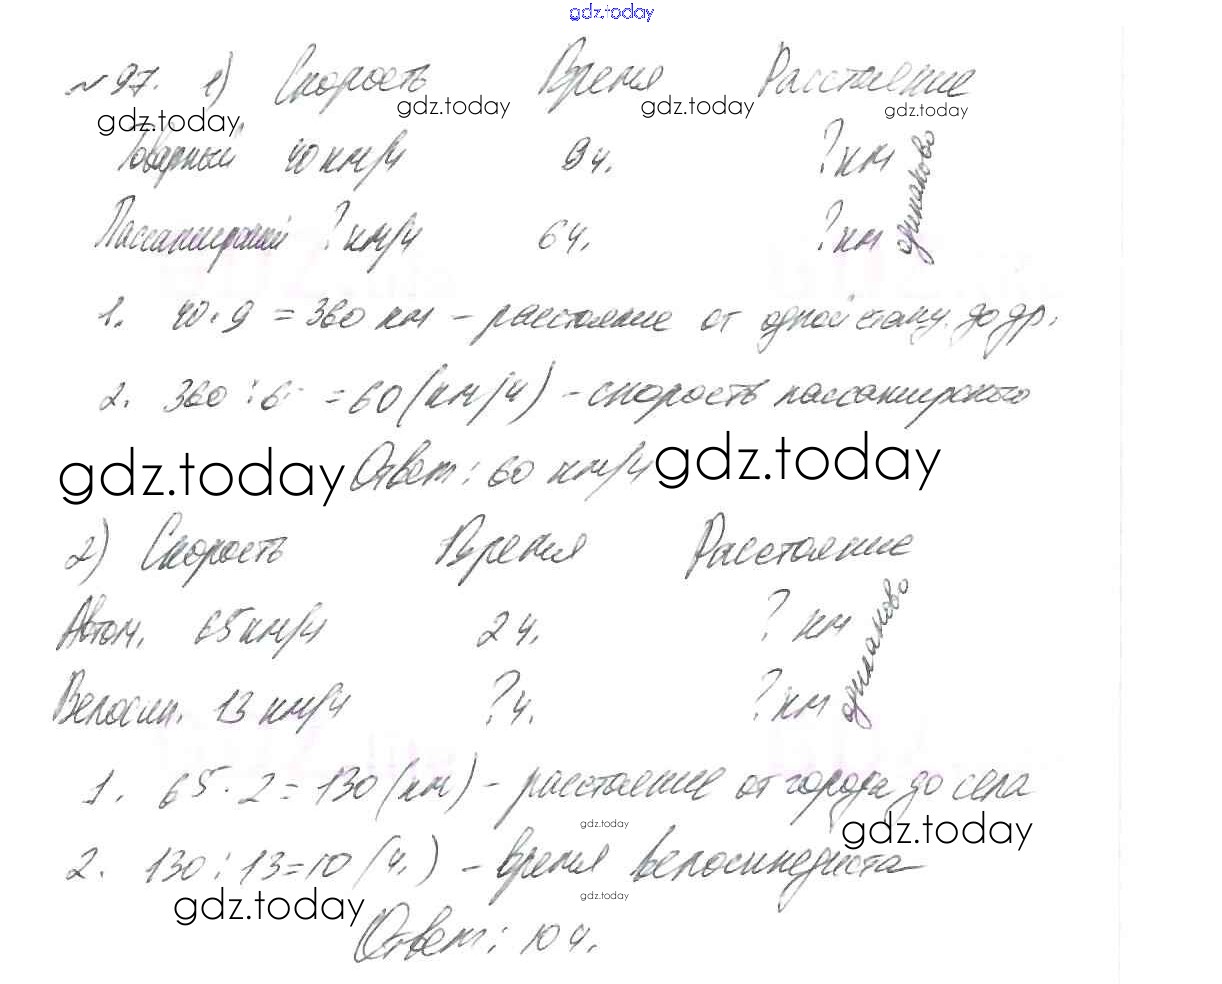 gdz.today
№97. 1) Скорость Время Расстояние
gdz.today gdz.today gdz.today gdz.today
Товарный 40 км/ч 9 ч. ? км одинаково
Пассажирский ? км/ч 6 ч. ? км
1. 40 · 9 = 360 км – расстояние от одной станц. до др.
2. 360 : 6 = 60 (км/ч) – скорость пассажирского
gdz.today Ответ: 60 км/ч gdz.today
2) Скорость Время Расстояние
Автом. 65 км/ч 2 ч. ? км одинаково
Велосип. 13 км/ч ? ч. ? км
1. 65 · 2 = 130 (км) – расстояние от города до села
gdz.today gdz.today
2. 130 : 13 = 10 (ч.) – время велосипедиста
gdz.today gdz.today
Ответ: 10 ч.